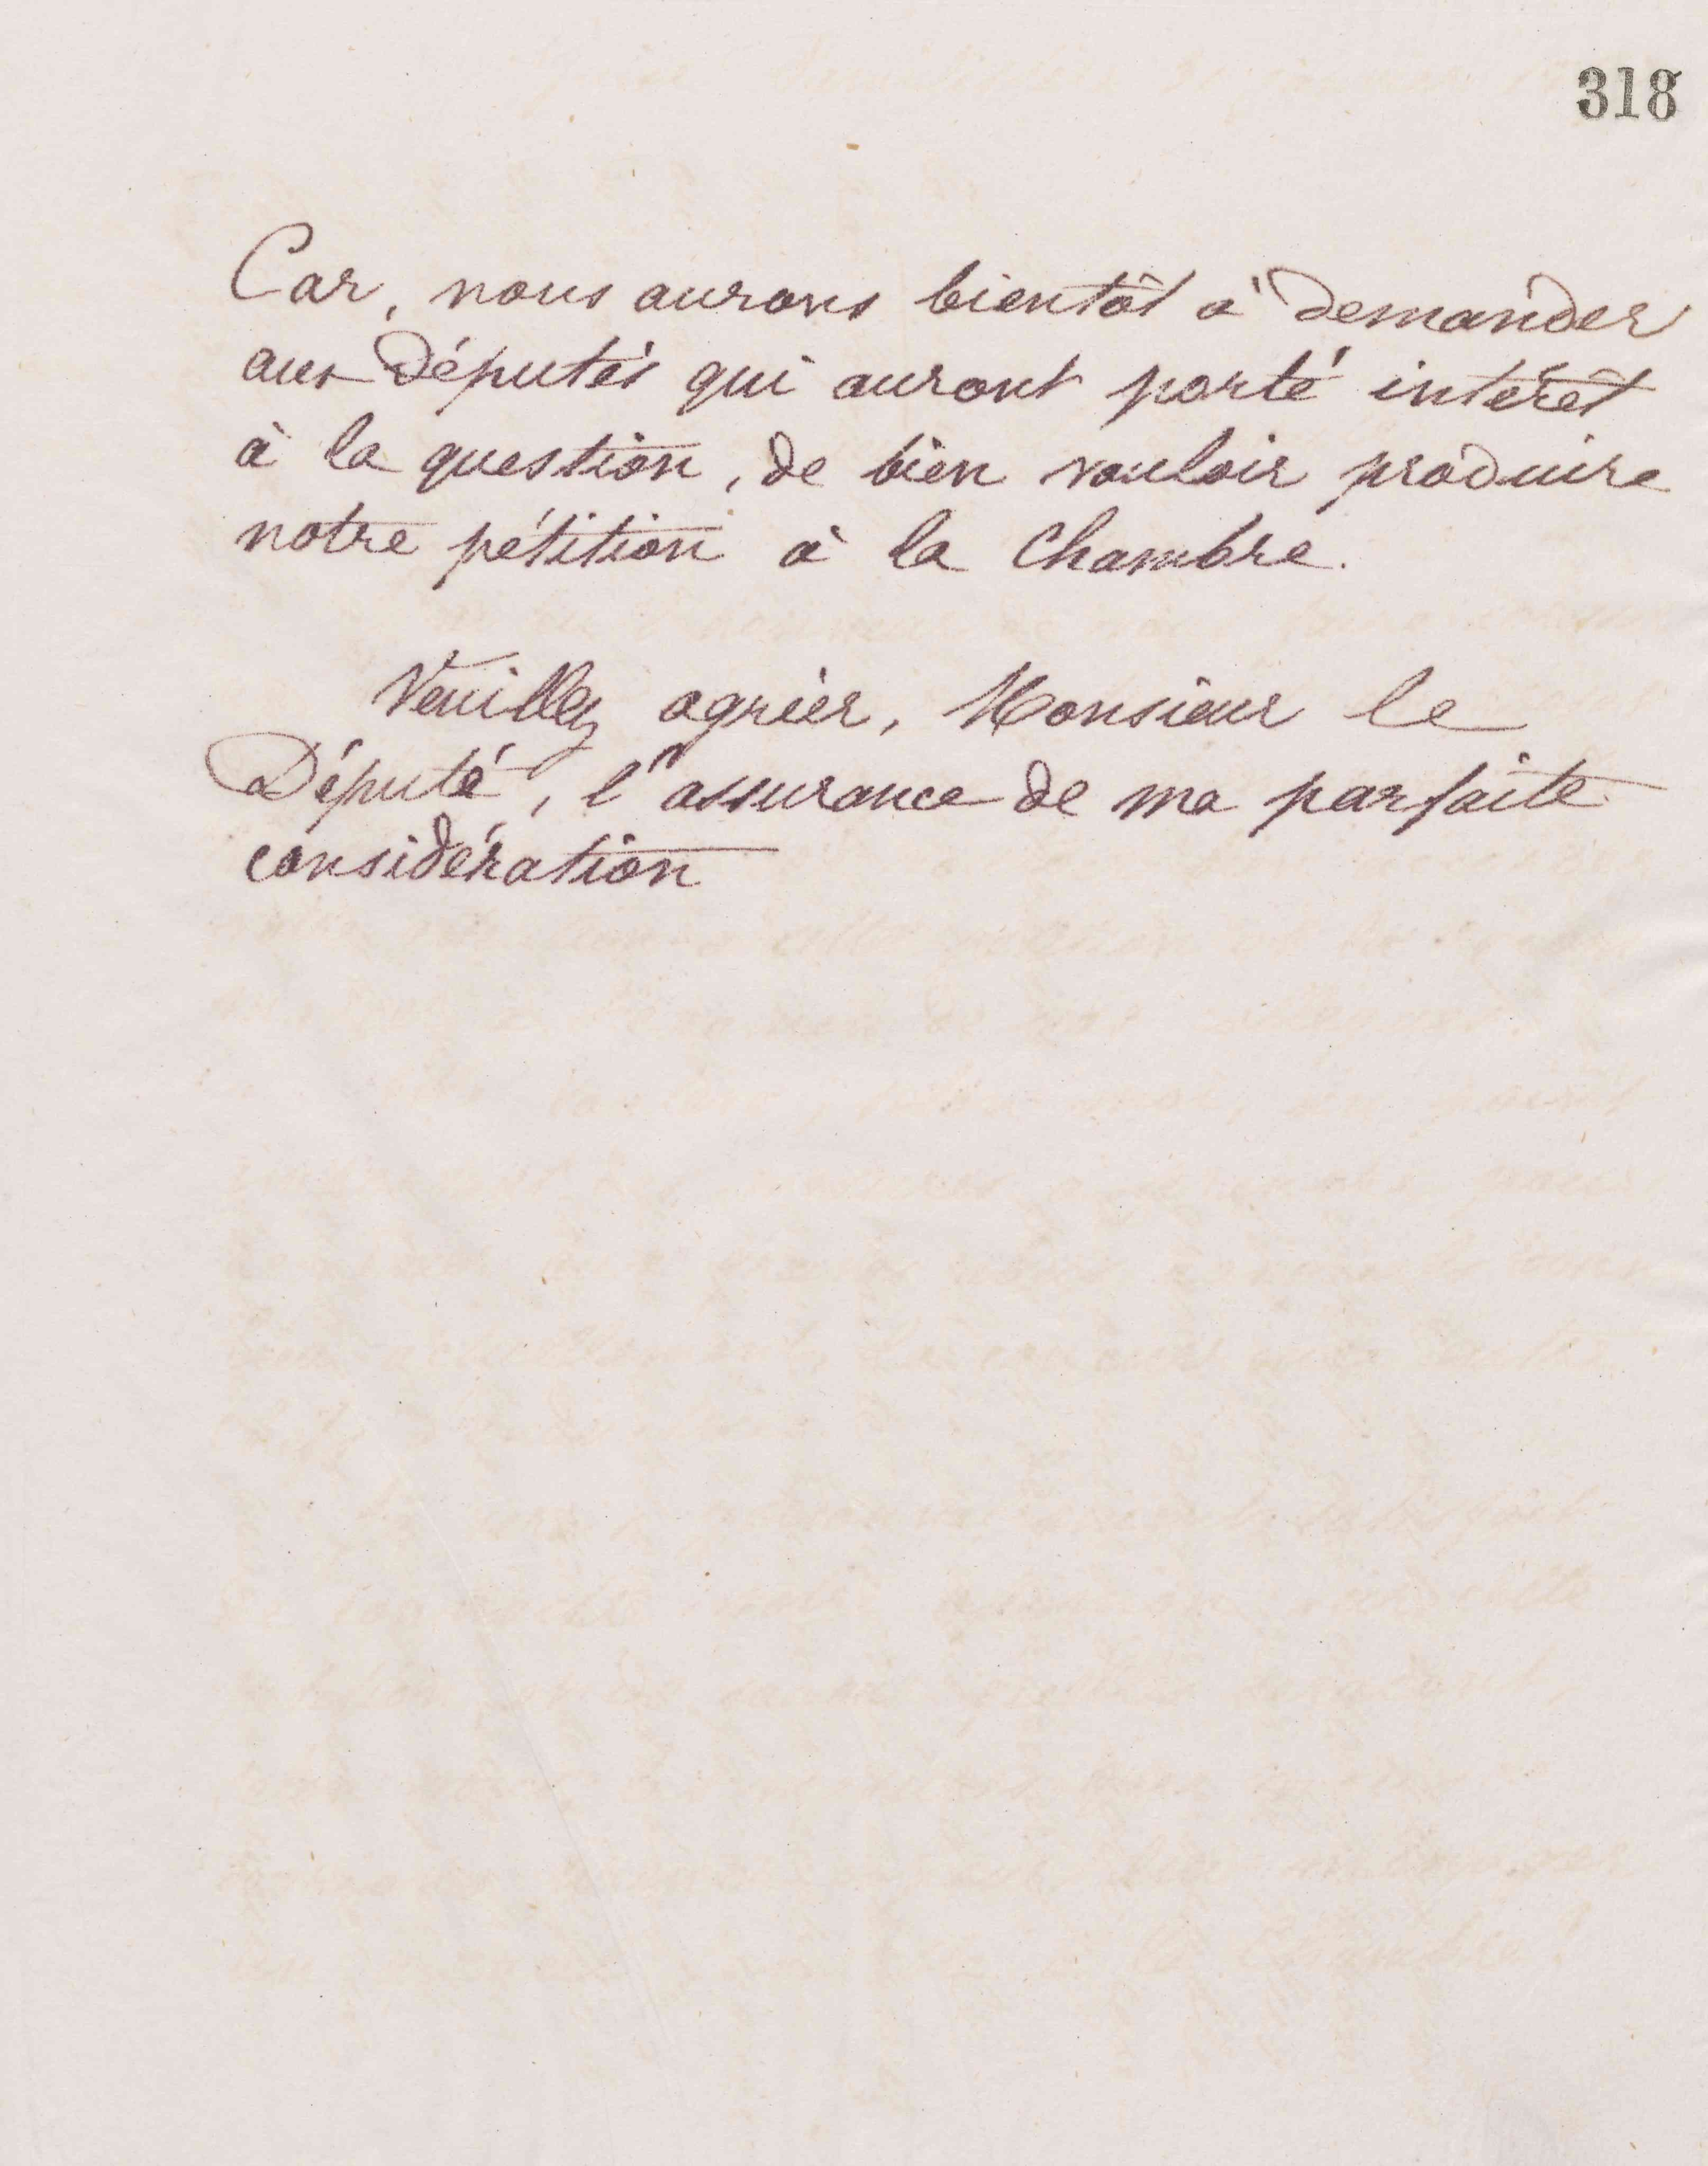 318
Car, nous aurons bientôt à demander
aux Députés qui auront porté intérêt
à la question, de bien vouloir produire
notre pétition à la Chambre.
Veuillez agréer, Monsieur le
Député, l'assurance de ma parfaite
considération